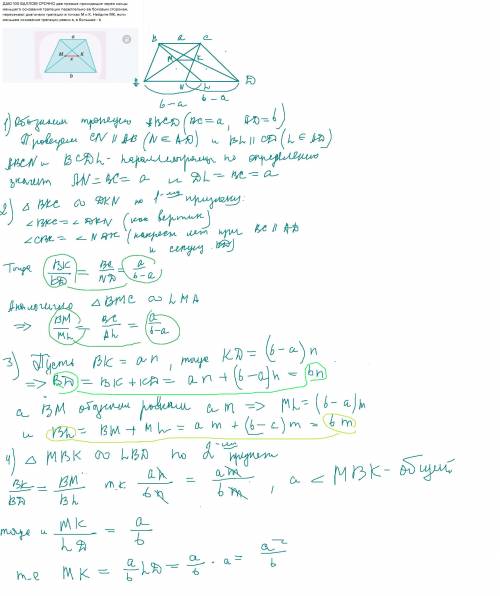 ДАЮ 100 БАЛЛОВ! СРОЧНО две прямые проходящие через концы
меньшего основания трапеции параллельно ее боковым сторонам,
пересекают диагонали трапеции в точках М и К. Найдите МК, если
меньшее основание трапеции равно a, а большее - b
a
M K
b
B a C
M K
A N L D
b-a b-a
1) Обозначим трапецию ABCD (BC=a, AD=b)
Проведем CN ∥ AB (N∈AD) и BL ∥ CD (L∈AD)
ABCN и BCDL - параллелограммы по определению
значит AN=BC=a и DL=BC=a
2) △BKC ∞ DKN по 1-му признаку:
∠BKC=∠DKN (как вертик)
∠CBK=∠NDK (накрест леж при BC∥AD
и секущ. BD)
Тогда BK/KD = BC/ND = a/b-a
Аналогично △BMC ∞ LMA
⇒ BM/ML = BC/AL = a/b-a
3) Пусть BK=an, тогда KD=(b-a)n
⇒ BD=BK+KD=an+(b-a)n=bn
а BM обозначим равным am ⇒ ML=(b-a)m
и BL=BM+ML=am+(b-a)m=bm
4) △MBK ∞ LBD по 2-му признаку
BK/BD = BM/BL т.к an/bn = am/bm, а ∠MBK-общий
тогда и MK/LD = a/b
т.е MK = a/b LD = a/b · a = a²/b